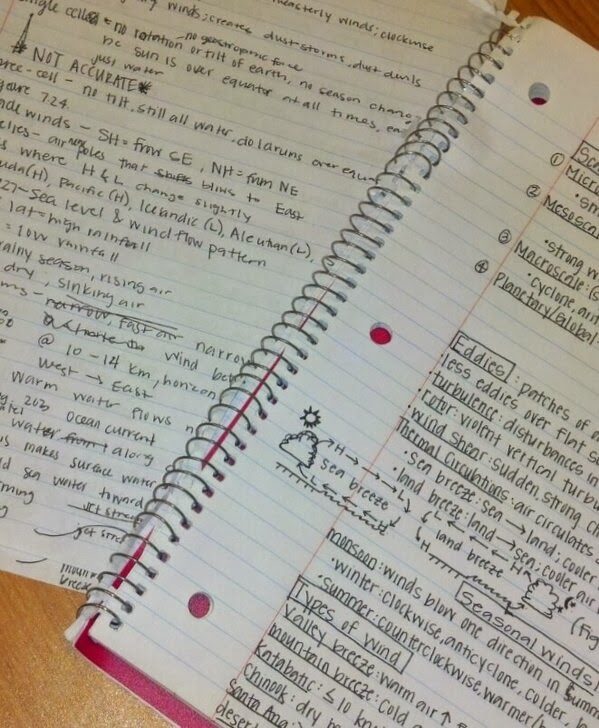 winds: creates dust storms, dust devils
easterly winds: clockwise
no rotation or tilt of earth, no season chang
no geostrophic force
sun is over equator at all times, ea
just water
* NOT ACCURATE *
cell - no tilt, still all water, do
7.24
winds - SH = from SE, NH = from NE
air poles that blows to East
where H & L change slightly
(H), Pacific (H), Icelandic (L), Aleutian (L),
Sea level & wind flow pattern
lat = high rainfall
= low rainfall
rainy season, rising air
dry, sinking air
narrow, fast air narrow
wind bet
@ 10-14 km, horizon
West → East
Warm water flows n
ocean current
water from along
makes surface water
sea water toward
jet stream
① Micro
② Mesoscale
• strong w
③ Macroscale: (s
• cyclone, ant
④ Planetary/Global
Eddies: patches of a
less eddies over flat su
turbulence: disturbances in
• rotor: violent vertical turbu
• wind shear: sudden, strong cha
Thermal Circulations: air circulates
• sea breeze: sea → land; cooler
• land breeze: land → sea; cooler air
H L L H
sea breeze
land breeze
L H
(fig
Seasonal Winds
monsoon: winds blow one direction in summ
• winter: clockwise, anticyclone, colder, la
• summer: counterclockwise, warmer
Types of Wind
Valley breeze: warm air ↑
mountain breeze: cold a
Katabatic: ≤ 10 kn
Chinook: dry
Santa Ana:
desert